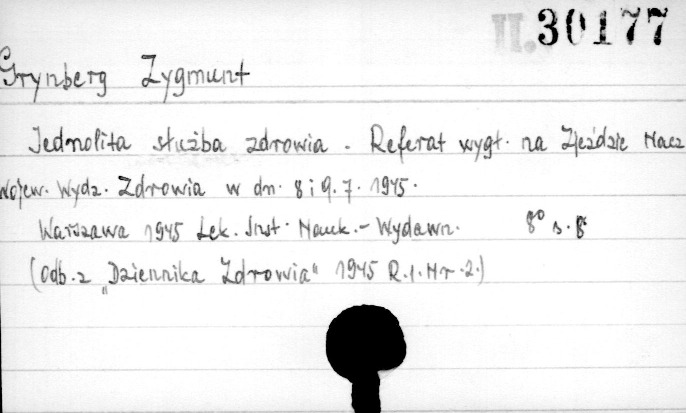 II. 30177
Grynberg Zygmunt
Jednolita służba zdrowia - Referat wygł. na Zjeździe Nacz
Wojew. Wydz. Zdrowia w dn. 8 i 9. 7. 1945.
Warszawa 1945 Lek. Inst. Nauk. - Wydawn. 8° s. 8
(Odb. z „Dziennika Zdrowia" 1945 R. 1. Nr. 2.)